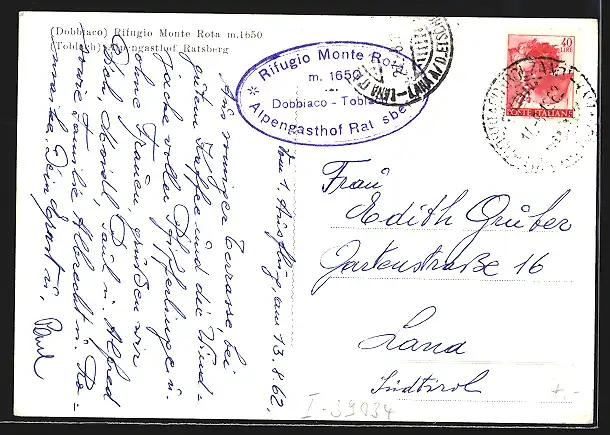 (Dobbiaco) Rifugio Monte Rota m. 1650
(Toblach) Alpengasthof Ratsberg
Rifugio Monte Rota
m. 1650
Dobbiaco - Toblach
Alpengasthof Ratsberg
40
LIRE
POSTE ITALIANE
Vom 1. Ausflug am 13.8.62,
Aus sonniger Terrasse, bei
gutem Kaffee und die Wind-
jacke voller Pfifferlinge u.
ohne Frauen, grüßen wir
Paul u. Alfred
Familie Albrecht u. Ro-
Dein Ernst u. Paul
Frau
Edith Gruber
Gartenstraße 16
Lana
Südtirol
I-39034